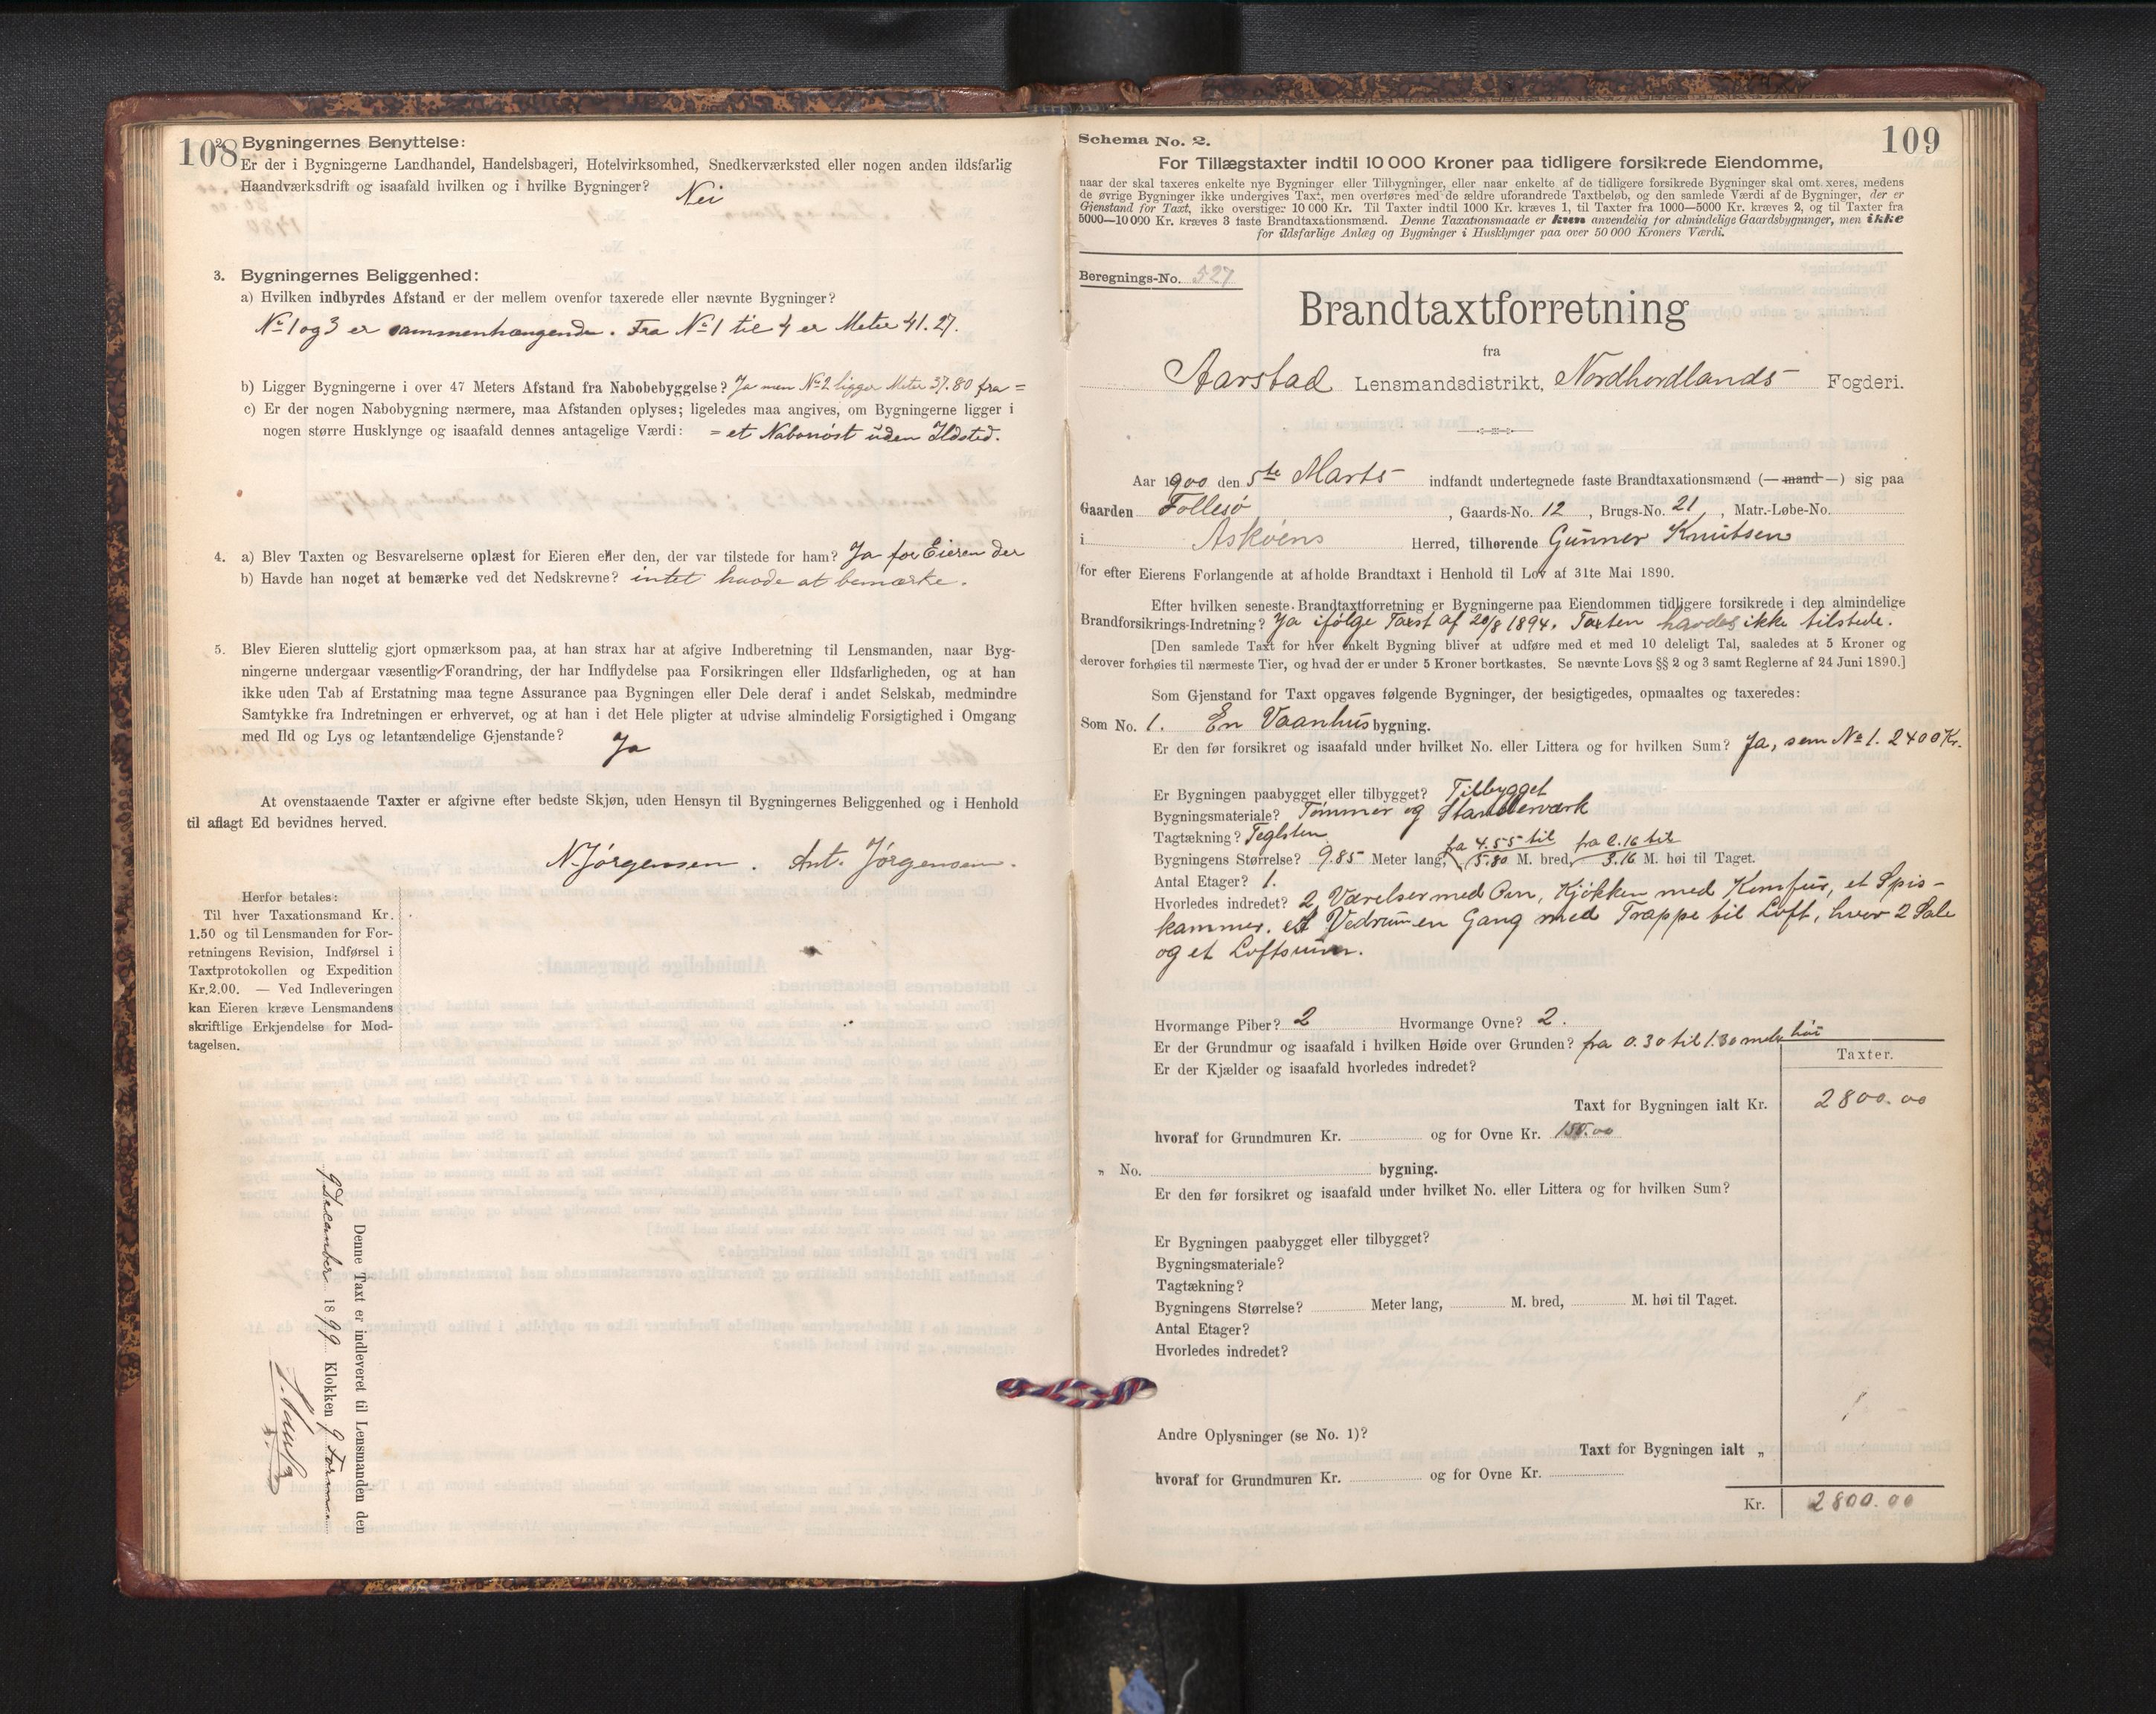 108
2. Bygningernes Benyttelse:
Er der i Bygningerne Landhandel, Handelsbageri, Hotelvirksomhed, Snedkerværksted eller nogen anden ildsfarlig
Haandværksdrift og isaafald hvilken og i hvilke Bygninger? Nei
3. Bygningernes Beliggenhed:
a) Hvilken indbyrdes Afstand er der mellem ovenfor taxerede eller nævnte Bygninger?
No 1 og 3 er sammenhængende. Fra No 1 til 4 er Meter 41.27.
b) Ligger Bygningerne i over 47 Meters Afstand fra Nabobebyggelse? Ja men No 2 ligger Meter 37.80 fra =
c) Er der nogen Nabobygning nærmere, maa Afstanden oplyses; ligeledes maa angives, om Bygningerne ligger i
nogen større Husklynge og isaafald dennes antagelige Værdi: = et Nabonöst uden Ildsted.
4. a) Blev Taxten og Besvarelserne oplæst for Eieren eller den, der var tilstede for ham? Ja for Eieren der
b) Havde han noget at bemærke ved det Nedskrevne? intet havde at bemærke.
5. Blev Eieren sluttelig gjort opmærksom paa, at han strax har at afgive Indberetning til Lensmanden, naar Byg-
ningerne undergaar væsentlig Forandring, der har Indflydelse paa Forsikringen eller Ildsfarligheden, og at han
ikke uden Tab af Erstatning maa tegne Assurance paa Bygningen eller Dele deraf i andet Selskab, medmindre
Samtykke fra Indretningen er erhvervet, og at han i det Hele pligter at udvise almindelig Forsigtighed i Omgang
med Ild og Lys og letantændelige Gjenstande? Ja
At ovenstaaende Taxter er afgivne efter bedste Skjøn, uden Hensyn til Bygningernes Beliggenhed og i Henhold
til aflagt Ed bevidnes herved.
N Jörgensen. Ant. Jörgensen.
Herfor betales:
Til hver Taxationsmand Kr.
1.50 og til Lensmanden for For-
retningens Revision, Indførsel i
Taxtprotokollen og Expedition
Kr. 2.00. — Ved Indleveringen
kan Eieren kræve Lensmandens
skriftlige Erkjendelse for Mod-
tagelsen.
Denne Taxt er indleveret til Lensmanden den
9 December 1899 Klokken 9 Form
109
Schema No. 2.
For Tillægstaxter indtil 10 000 Kroner paa tidligere forsikrede Eiendomme,
naar der skal taxeres enkelte nye Bygninger eller Tilbygninger, eller naar enkelte af de tidligere forsikrede Bygninger skal omtaxeres, medens
de øvrige Bygninger ikke undergives Taxt, men overføres med de ældre uforandrede Taxtbeløb, og den samlede Værdi af de Bygninger, der er
Gjenstand for Taxt, ikke overstiger 10 000 Kr. Til Taxter indtil 1000 Kr. kræves 1, til Taxter fra 1000—5000 Kr. kræves 2, og til Taxter fra
5000—10 000 Kr. kræves 3 faste Brandtaxationsmænd. Denne Taxationsmaade er kun anvendelig for almindelige Gaardsbygninger, men ikke
for ildsfarlige Anlæg og Bygninger i Husklynger paa over 50 000 Kroners Værdi.
Beregnings-No. 527
Brandtaxtforretning
fra
Aarstad Lensmandsdistrikt, Nordhordlands Fogderi.
Aar 1900 den 5te Marts indfandt undertegnede faste Brandtaxationsmænd (— mand —) sig paa
Gaarden Follesö, Gaards-No. 12, Brugs-No. 21, Matr.-Løbe-No.
i Askøens Herred, tilhørende Gunner Knutsen
for efter Eierens Forlangende at afholde Brandtaxt i Henhold til Lov af 31te Mai 1890.
Efter hvilken seneste Brandtaxtforretning er Bygningerne paa Eiendommen tidligere forsikrede i den almindelige
Brandforsikrings-Indretning? Ja ifölge Taxst af 20/8 1894. Taxten havdes ikke tilstede.
[Den samlede Taxt for hver enkelt Bygning bliver at udføre med et med 10 deleligt Tal, saaledes at 5 Kroner og
derover forhøies til nærmeste Tier, og hvad der er under 5 Kroner bortkastes. Se nævnte Lovs §§ 2 og 3 samt Reglerne af 24 Juni 1890.]
Som Gjenstand for Taxt opgaves følgende Bygninger, der besigtigedes, opmaaltes og taxeredes:
Som No. 1. En Vaanhus bygning.
Er den før forsikret og isaafald under hvilket No. eller Littera og for hvilken Sum? Ja, som No 1. 2400 Kr.
Er Bygningen paabygget eller tilbygget? Tilbygget
Bygningsmateriale? Tömmer og Standerværk
Tagtækning? Teglsten
Bygningens Størrelse? 9.85 Meter lang, fra 4.55 til 5.80 M. bred, fra 2.16 til 3.16 M. høi til Taget.
Antal Etager? 1.
Hvorledes indredet? 2 Værelser med Ovn, Kjökken med Komfur, et Spis-
kammer, et Vedrum en Gang med Trappe til Loft, hvor 2 Sale
og et Loftsrum.
Hvormange Piber? 2 Hvormange Ovne? 2.
Er der Grundmur og isaafald i hvilken Høide over Grunden? fra 0.30 til 1.30 meter höi
Er der Kjælder og isaafald hvorledes indredet?
Taxter.
Taxt for Bygningen ialt Kr. 2800.00
hvoraf for Grundmuren Kr. og for Ovne Kr. 150.00
„ No. bygning.
Er den før forsikret og isaafald under hvilket No. eller Littera og for hvilken Sum?
Er Bygningen paabygget eller tilbygget?
Bygningsmateriale?
Tagtækning?
Bygningens Størrelse? Meter lang, M. bred, M. høi til Taget.
Antal Etager?
Hvorledes indredet?
Andre Oplysninger (se No. 1)?
Taxt for Bygningen ialt „
hvoraf for Grundmuren Kr. og for Ovne Kr.
Kr. 2800.00